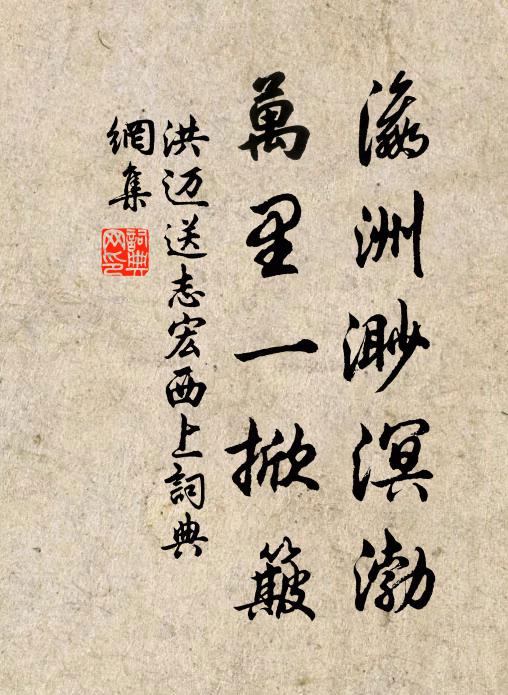 瀛洲渺溟渤
萬里一掀簸
洪迈送志宏西上詞典
網集
詞典網印